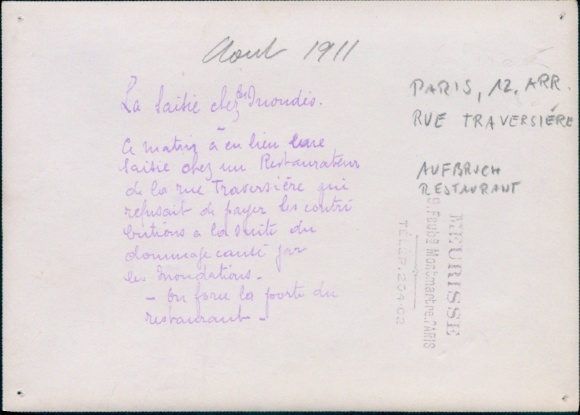 Aout 1911
La Saisie chez les Inondés.
Ce matin à eu lieu une
saisie chez un Restaurateur
de la rue Traversière qui
refusait de payer les contri
butions a la suite du
dommage causé par
les Inondations_
_ On force la porte du
restaurant_
PARIS, 12. ARR.
RUE TRAVERSIÉRE
AUFBRUCH
RESTAURANT
MEURISSE
9, Foubg Montmartre, PARIS
TÉLÉP. 254-02